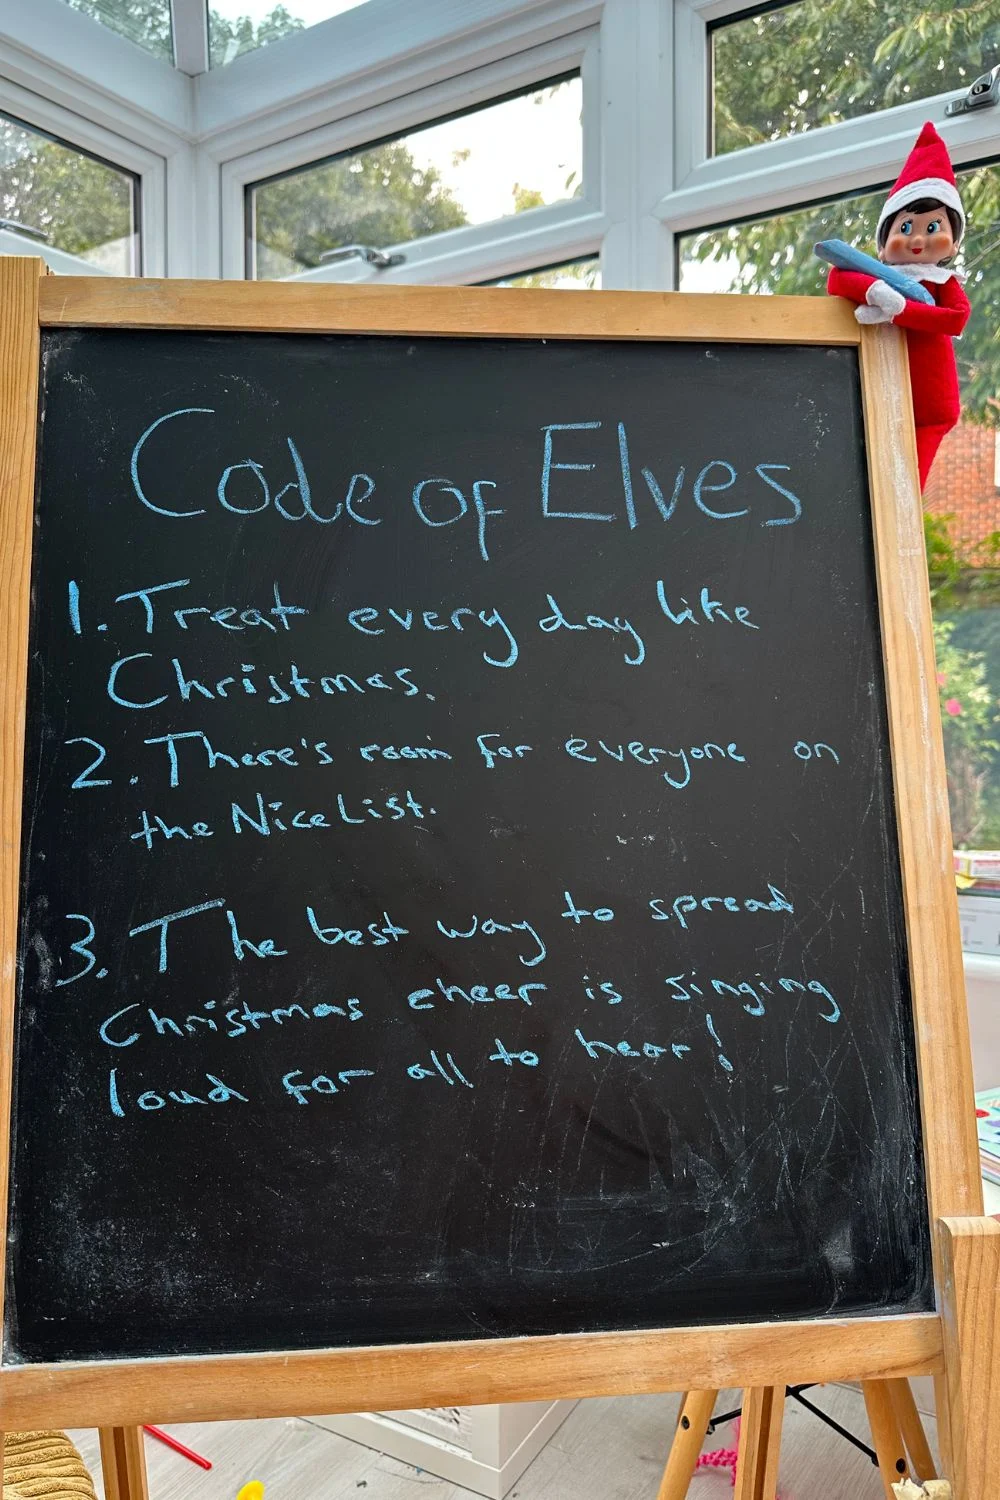 Code of Elves
1. Treat every day like
Christmas.
2. There's room for everyone on
the Nice List.
3. The best way to spread
Christmas cheer is singing
loud for all to hear!